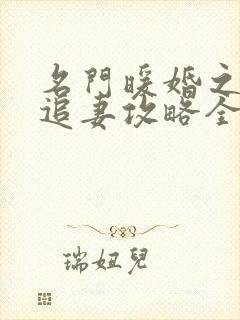 名門暖婚之
追妻攻略全
瑞妞兒